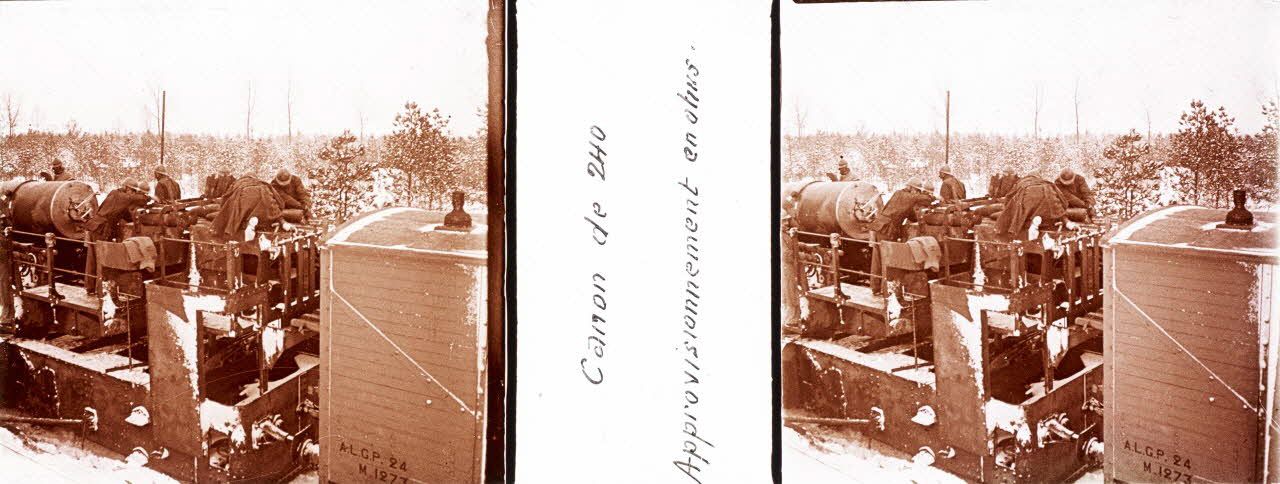 Canon de 240
Approvisionnement en obus.
A.L.G.P. 24
M.1273
A.L.G.P. 24
M.1273